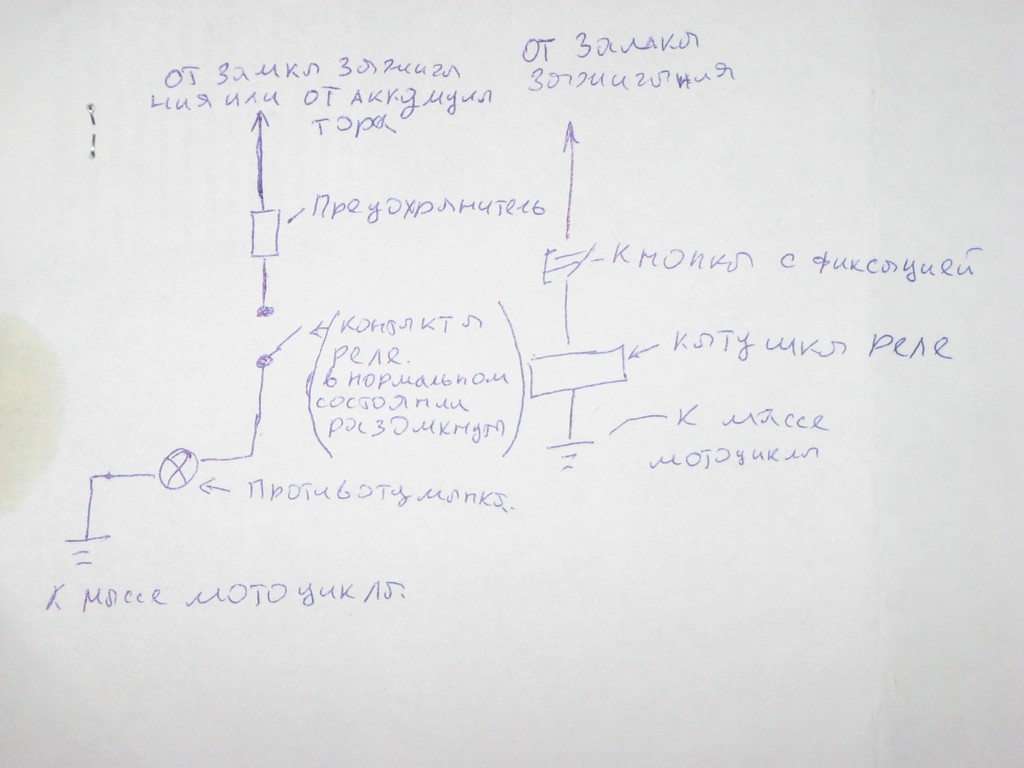 от замка зажига
ния или от аккумуля
тора
от замка
зажигания
Предохранитель
Кнопка с фиксацией
контакты
реле.
в нормальном
состоянии
разомкнуты
катушка реле
к массе
мотоцикла
Противотуманка.
К массе мотоцикла.